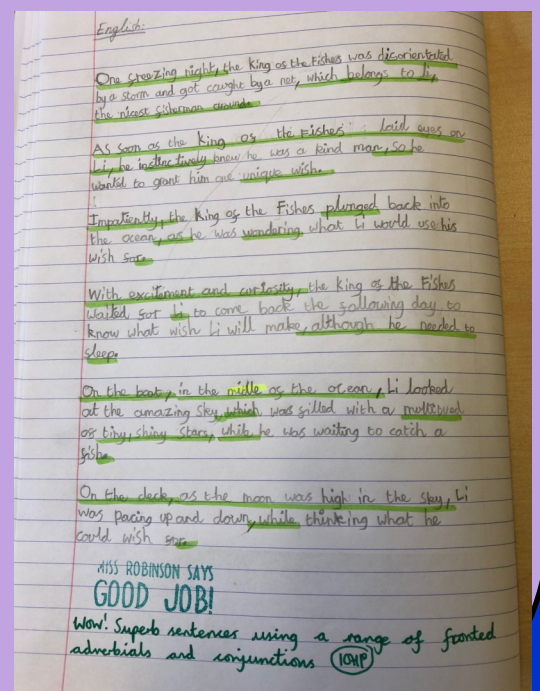 English:
One freezing night, the King of the Fishes was disorientated
by a storm and got caught by a net, which belongs to Li,
the nicest fisherman around.
As soon as the King of the Fishes laid eyes on
Li, he instinctively knew he was a kind man, so he
wanted to grant him one unique wish.
Impatiently, the King of the Fishes plunged back into
the ocean, as he was wondering what Li would use his
wish for.
With excitement and curiosity, the King of the Fishes
waited for Li to come back the following day to
know what wish Li will make, although he needed to
sleep.
On the boat, in the midle of the ocean, Li looked
at the amazing sky which was filled with a
of tiny, shiny stars, while he was waiting to catch a
fish.
On the deck, as the moon was high in the sky, Li
was pacing up and down, while thinking what he
could wish for.
MISS ROBINSON SAYS
GOOD JOB!
Wow! Superb sentences using a range of fronted
adverbials and conjunctions 10HP